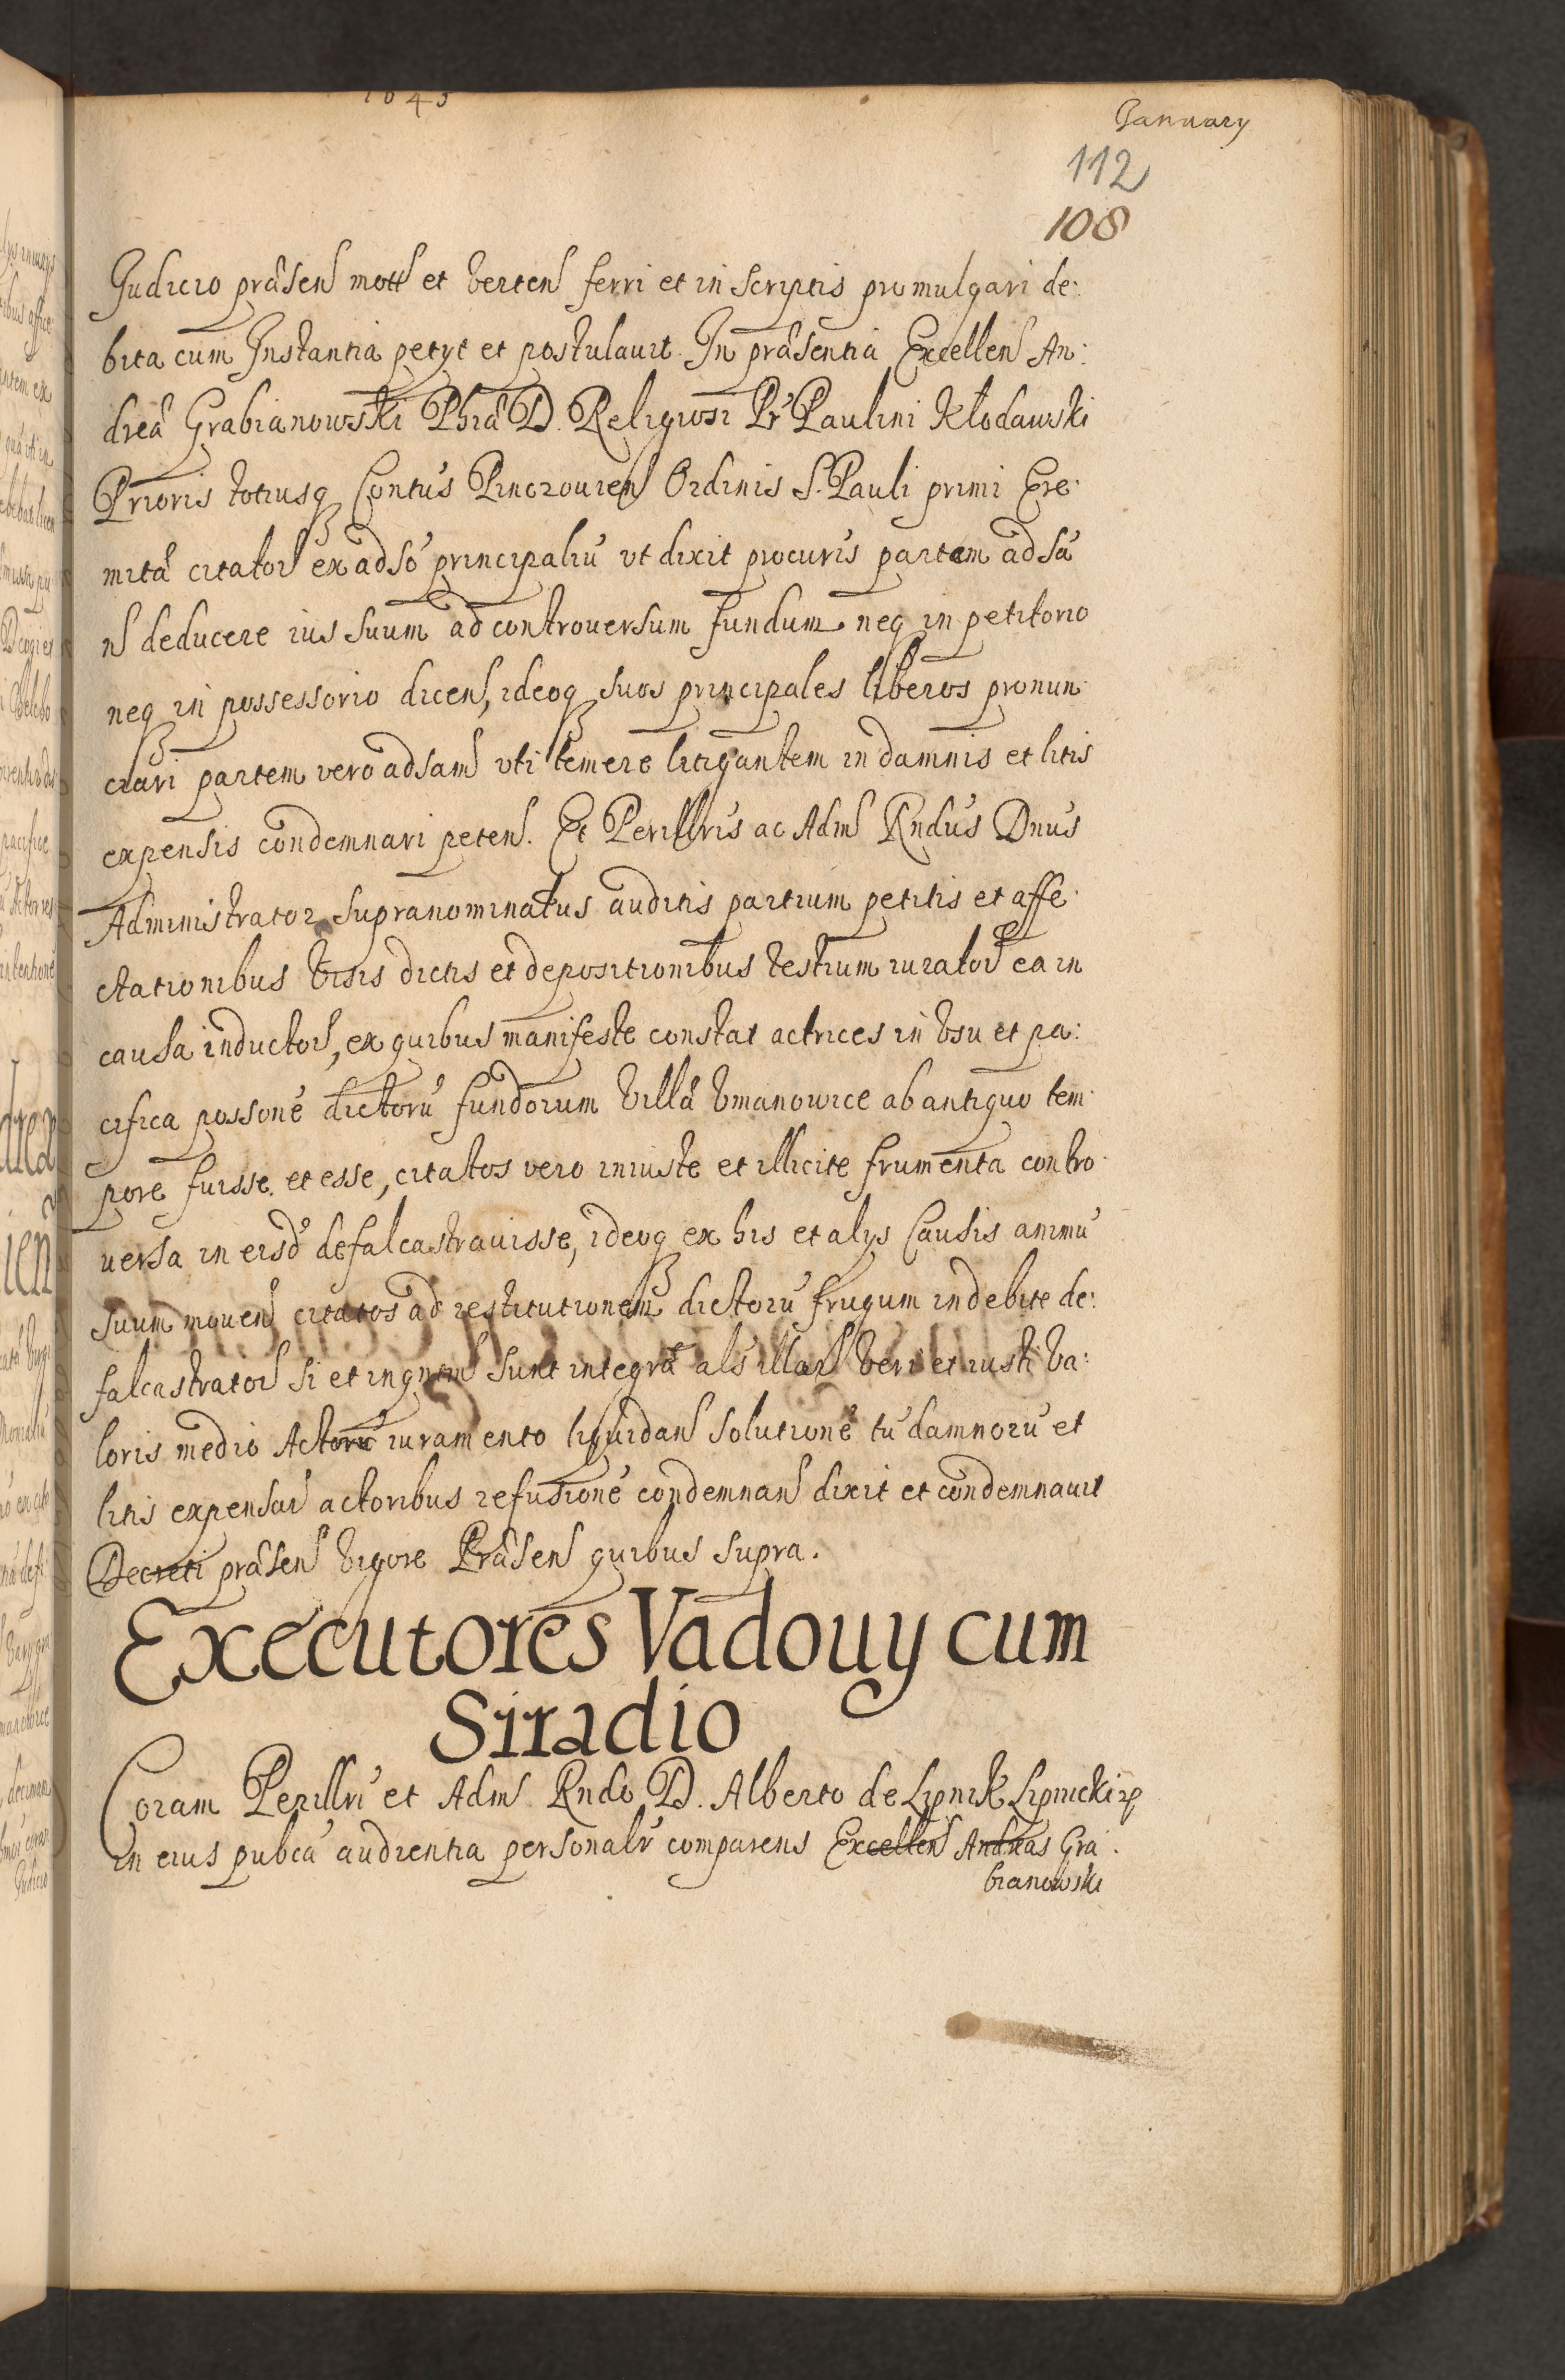 1643
January
112
108
Judicio præsen mott et verten ferri et in scriptis promulgari de:
bita cum Instantia petyt et postulauit. In præsentia Excellen An:
dreæ Grabianowski Phiæ D. Religiosi Pr Paulini Kłodawski
Prioris totiusq Contus Pinczouien Ordinis S. Pauli primi Ere:
mitæ citator ex adso principaliu vt dixit procuris partem adsa
n deducere ius suum ad controuersum fundum neq in petitorio
neq in possessorio dicen, ideoq suos principales liberos pronun:
ciari partem vero adsam vti temere litigantem in damnis et litis
expensis condemnari peten. Et Perillris ac Adm Rndus Dnus
Administrator supranominatus auditis partium petitis et affe:
ctationibus visis dictis et depositionibus testium iurator ea in
causa inductor, ex quibus manifeste constat actrices in vsu et pa:
cifica possone dictoru fundorum villæ Vmanowice ab antiquo tem:
pore fuisse et esse, citatos vero iniuste et illicite frumenta contro:
uersa in eisd defalcastrauisse, ideoq ex his et alys Causis animu
suum mouen citatos ad restitutionem dictoru frugum indebite de:
falcastrator si et inqntm sunt integræ als illar veri et iusti va:
loris medio Actoru iuramento liquidan solutione tu damnoru et
litis expensar actoribus refusione condemnan dixit et condemnauit
Decreti præsen vigore Præsen quibus supra.
Executores Vadouy cum
Siradio
Coram Perillri et Adm Rndo D. Alberto de Lipnik Lipnicki
in eius pubca audientia personalr comparens Excellen Andreas Gra:
bianowski